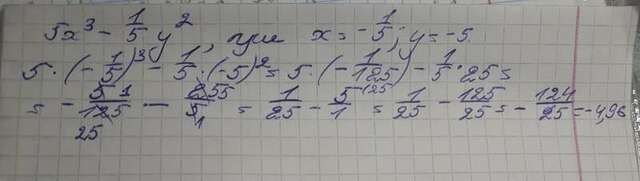 5x³ - 1/5 y², где x = -1/5; y = -5.
5·(-1/5)³ - 1/5·(-5)² = 5·(-1/125) - 1/5·25 =
= -5̶ 1/1̶2̶5̶ 25 - 2̶5̶ 5/5̶ 1 = 1/25 - 5/1 = 1/25 - 125/25 = -124/25 = -4,96